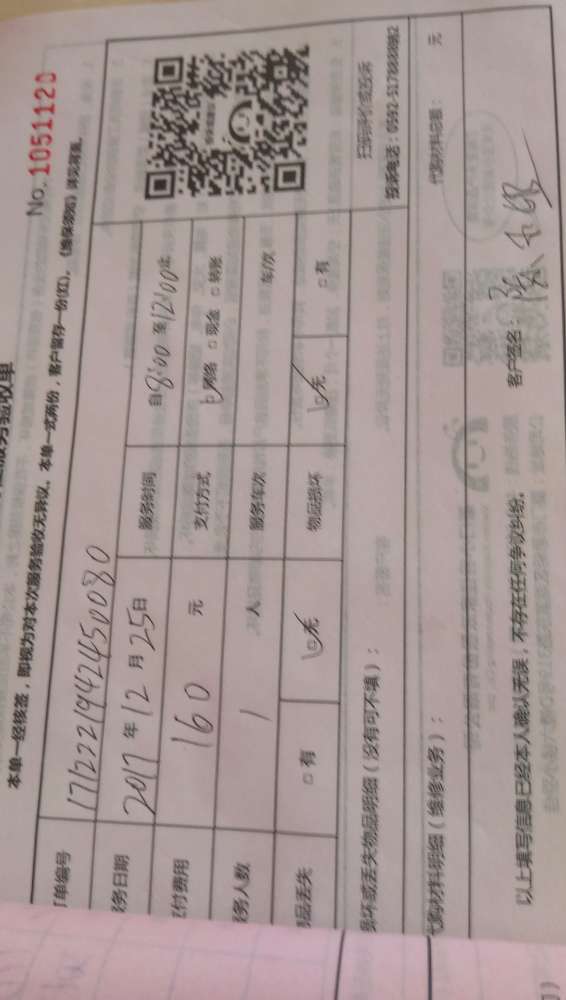 服务验收单
No.1051120
本单一经核签，即视为对本次服务验收无异议。本单一式两份，客户留存一份(红)。《维保须知》详见背面。
订单编号 1712221942450080
服务日期 2017 年 12 月 25 日 服务时间 自 8:00 至 12:00 止
支付费用 160 元 支付方式 网络 □ 现金 □ 转账
服务人数 1 人 服务车次 车/次
物品丢失 □ 有 □ 无 物品损坏 □ 无 □ 有
扫码评价或投诉
投诉电话：0592-5178888转2
损坏或丢失物品明细（没有可不填）：
代购材料明细（维修业务）： 代购材料总额： 元
以上填写信息已经本人确认无误，不存在任何争议纠纷。 客户签名：